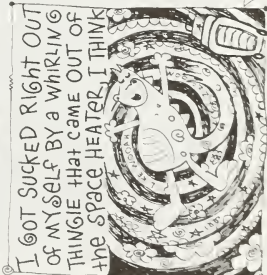 I GOT SUCKED RIGHT OUT
OF MYSELF BY A WHIRLING
THINGIE that CAME OUT OF
the SPACE HEATER, I THINK